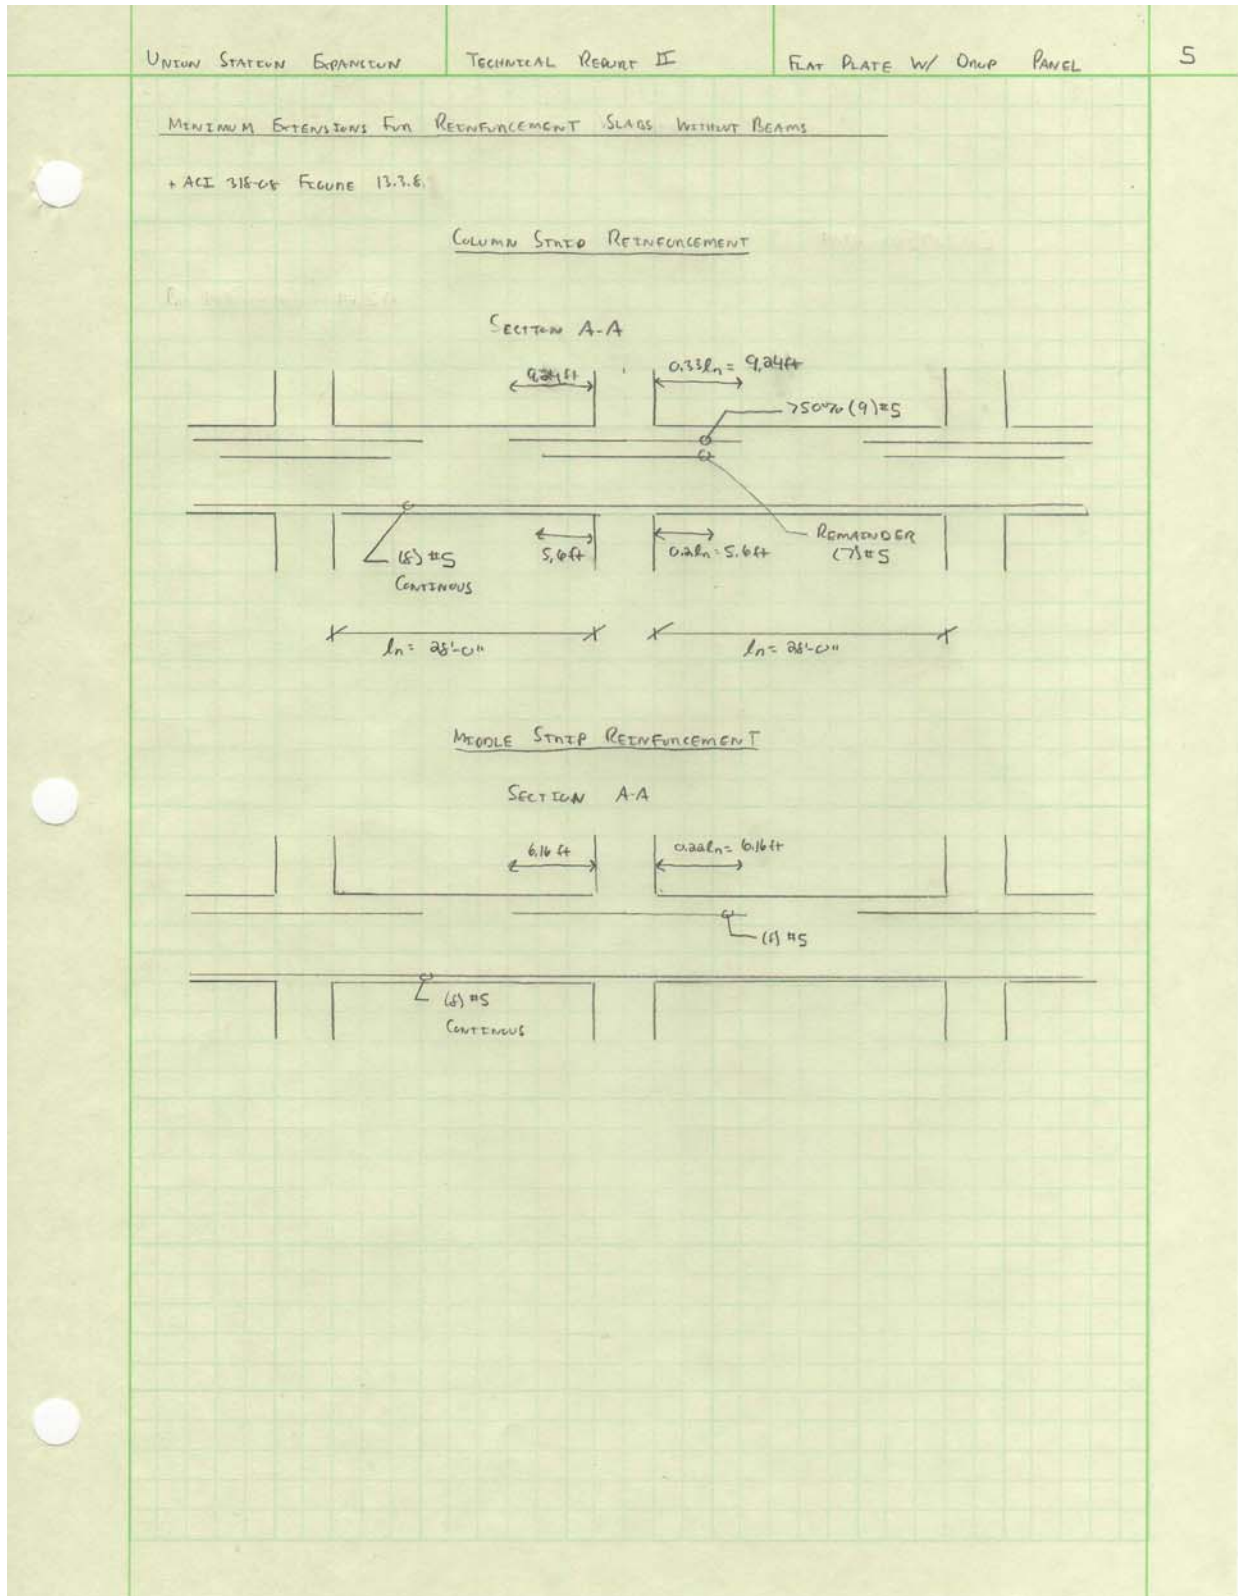 UNION STATION EXPANSION
TECHNICAL REPORT II
FLAT PLATE W/ DROP PANEL
5
MINIMUM EXTENSIONS FOR REINFORCEMENT SLABS WITHOUT BEAMS
+ ACI 318-08 FIGURE 13.3.8.
COLUMN STRIP REINFORCEMENT
SECTION A-A
9.24ft
0.33ln = 9.24ft
>50% (9)#5
5.6ft
0.2ln = 5.6ft
REMAINDER
(7)#5
(8) #5
CONTINOUS
ln = 28'-0"
ln = 28'-0"
MIDDLE STRIP REINFORCEMENT
SECTION A-A
6.16 ft
0.22ln = 6.16ft
(8) #5
(8) #5
CONTINOUS